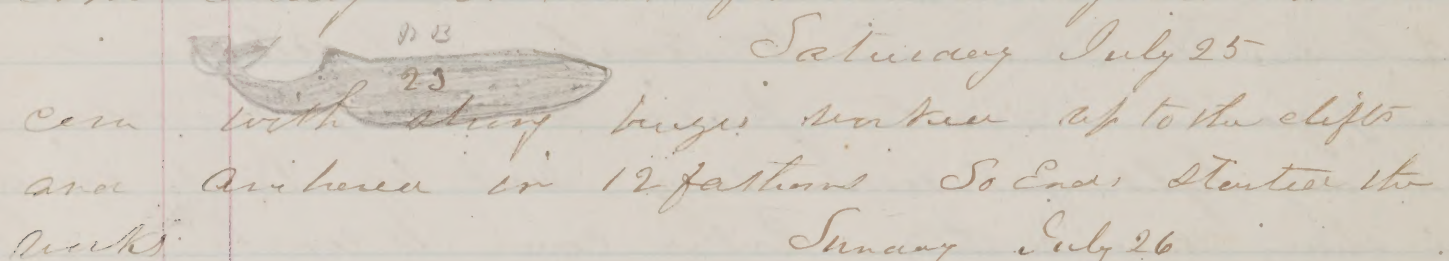 N B
Saturday July 25
23
Com with strong breeze worked up to the clifts
and anchored in 12 fathoms So Ends started the
works
Sunday July 26